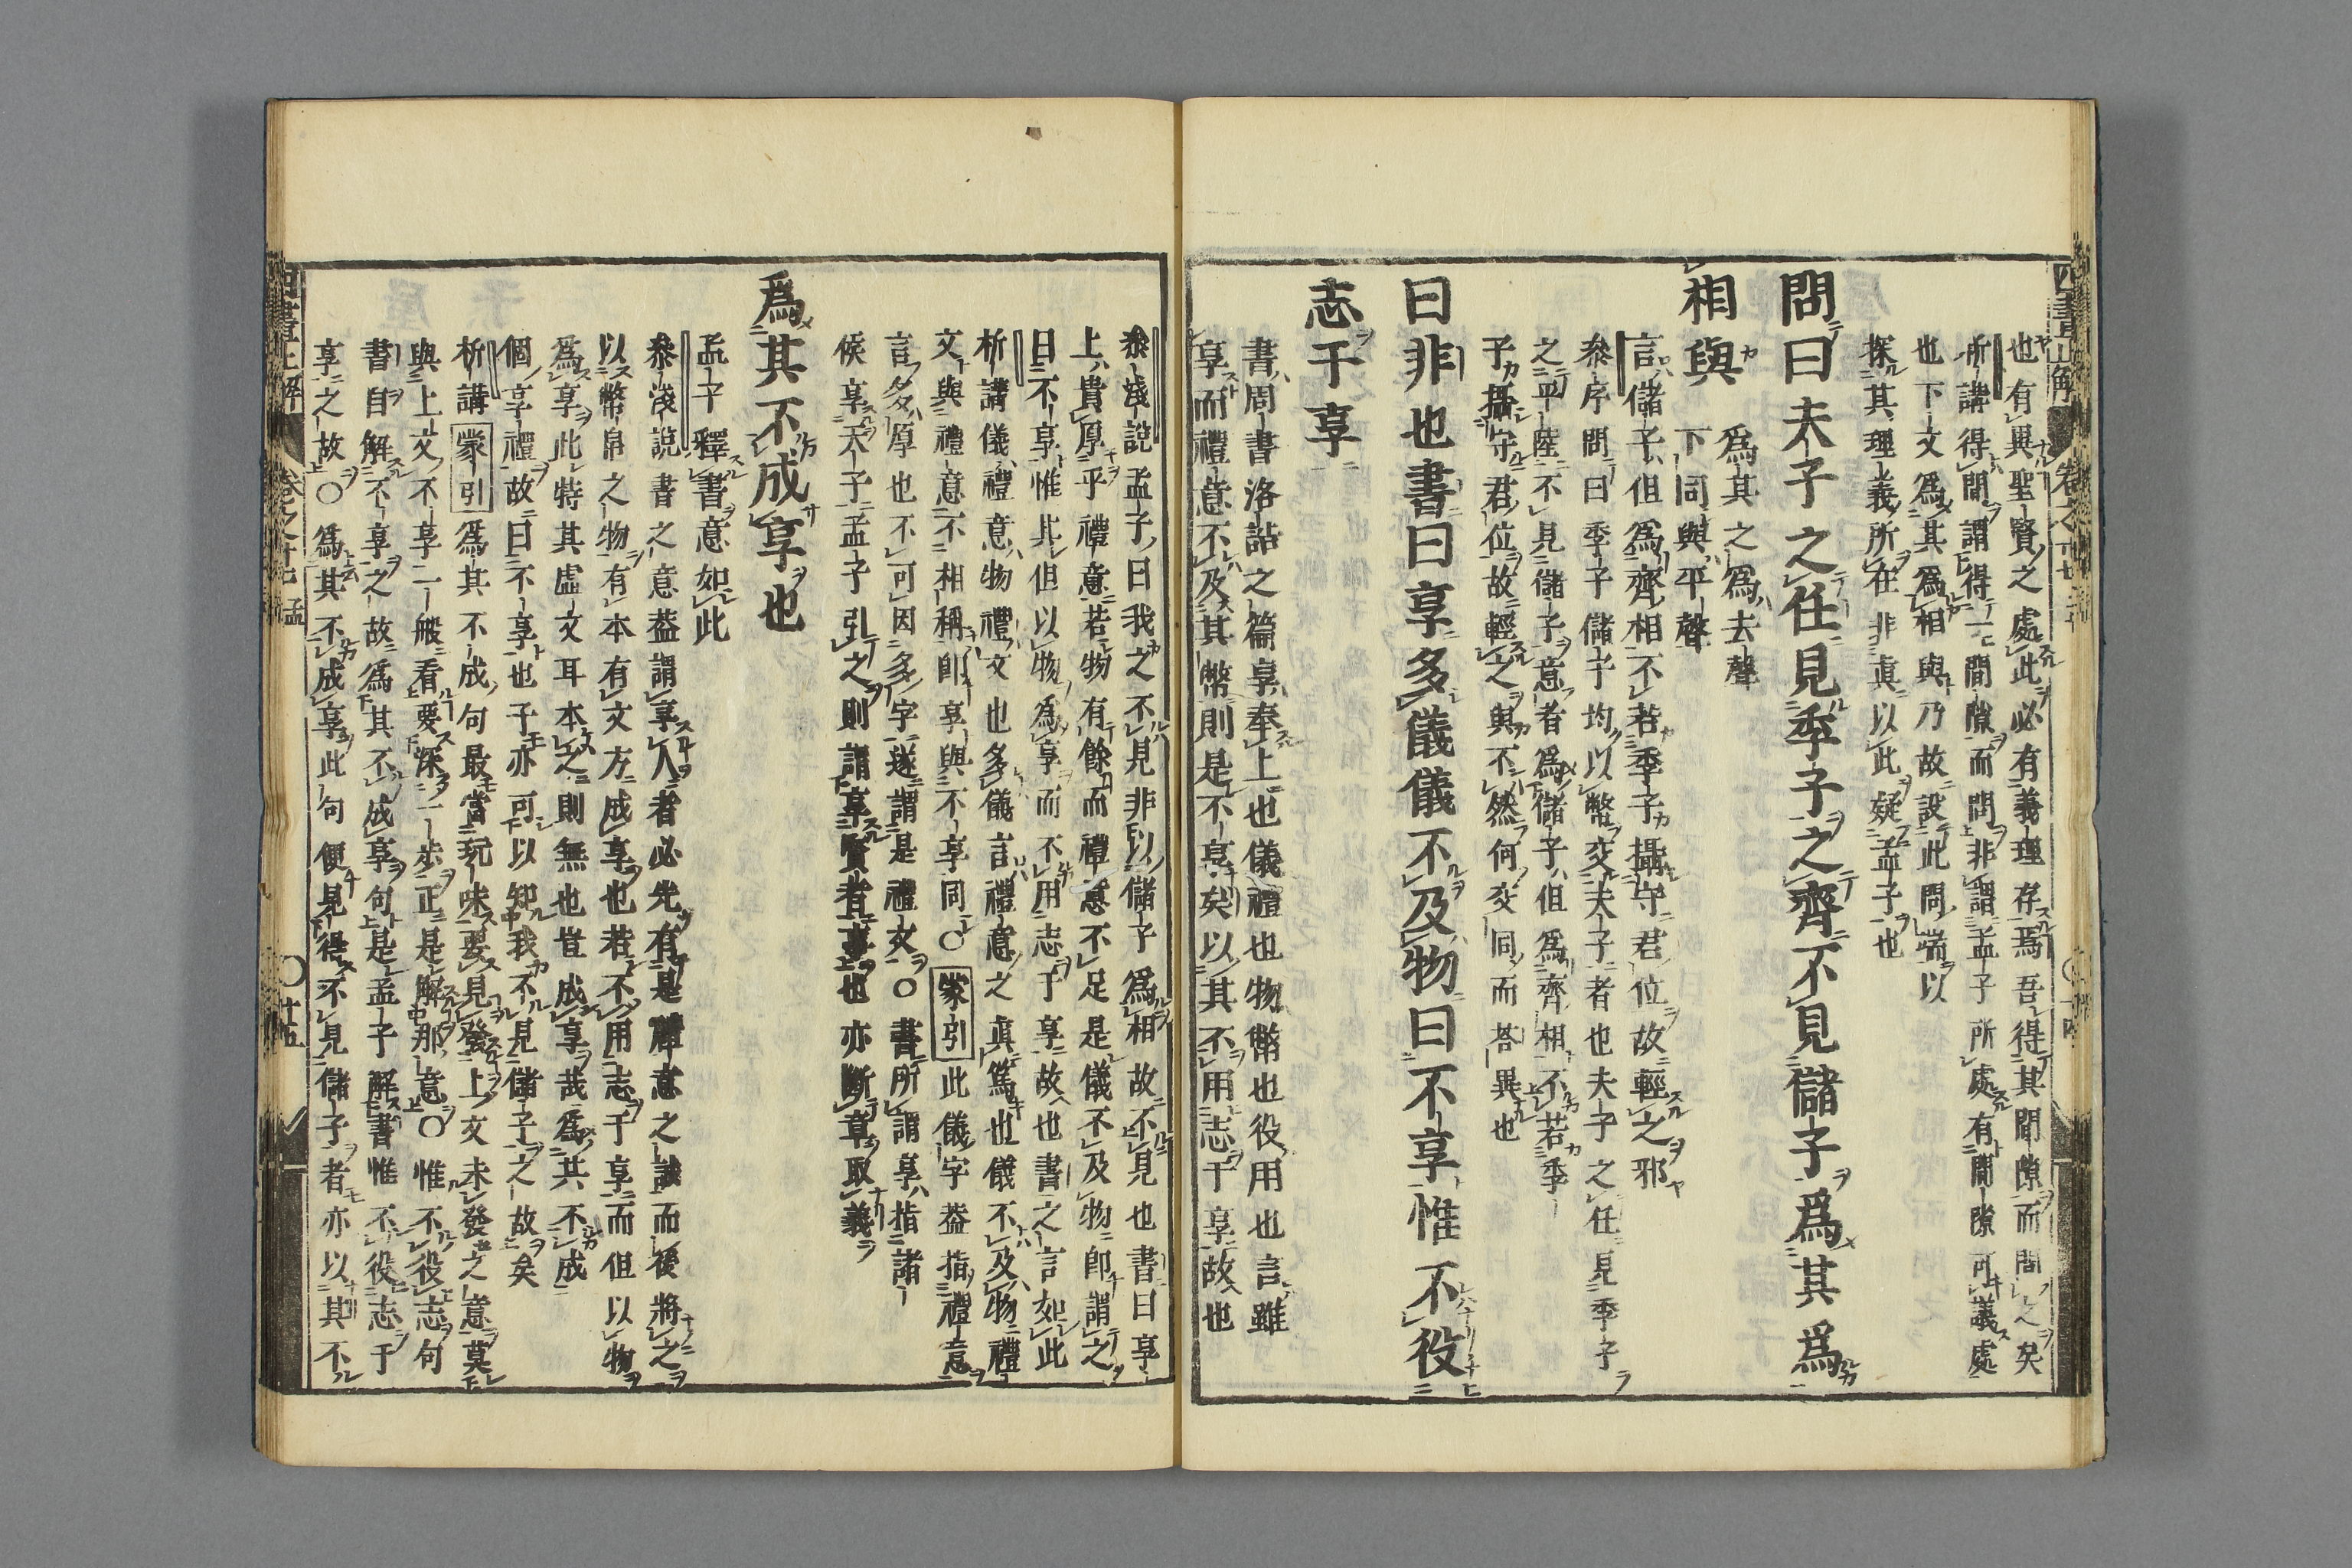 也有異聖賢之處此必有義理存焉吾得其間隙而問之矣
析講得間謂得一間隙而問非謂孟子所處有間隙可議處
也下文爲其爲相與乃故設此問端以
探其理義所在非眞以此疑孟子也
問曰夫子之任見季子之齊不見儲子爲其爲
相與
爲其之爲去聲
下同與平聲
言儲子但爲齊相不若季子攝守君位故輕之邪
叅序問曰季子儲子均以幣交夫子者也夫子之任見季子
之平陸不見儲子意者爲儲子但爲齊相不若季
子攝守君位故輕之與不然何交同而荅異也
曰非也書曰享多儀儀不及物曰不享惟不役
志于享
書周書洛誥之篇享奉上也儀禮也物幣也役用也言雖
享而禮意不及其幣則是不享矣以其不用志于享故也
叅淺說孟子曰我之不見非以儲子爲相故不見也書曰享
上貴厚乎禮意若物有餘而禮意不足是儀不及物卽謂之
曰不享惟其但以物爲享而不用志于享故也書之言如此
析講儀禮意物禮文也多儀言禮意之眞篤也儀不及物禮
文與禮意不相稱卽享與不享同○蒙引此儀字葢指禮意
言多厚也不可因多字遂謂是禮文○書所謂享指諸
侯享天子孟子引之則謂享賢者享也亦斷章取義
爲其不成享也
孟子釋書意如此
叅淺說書之意葢謂享人者必先有是禮意之誠而後將之
以幣帛之物有本有文方成享也若不用志于享而但以物
爲享此特其虛文耳本之則無也豈成享哉爲其不成
個享禮故曰不享也子亦可以知我不見儲子之故矣
析講蒙引爲其不成句最當玩味要見發上文未發之意莫
與上文不享一般看要深一步正是解那意○惟不役志句
書自解不享之故爲其不成享句是孟子解書惟不役志于
享之故○爲其不成享此句便見得不見儲子者亦以其不